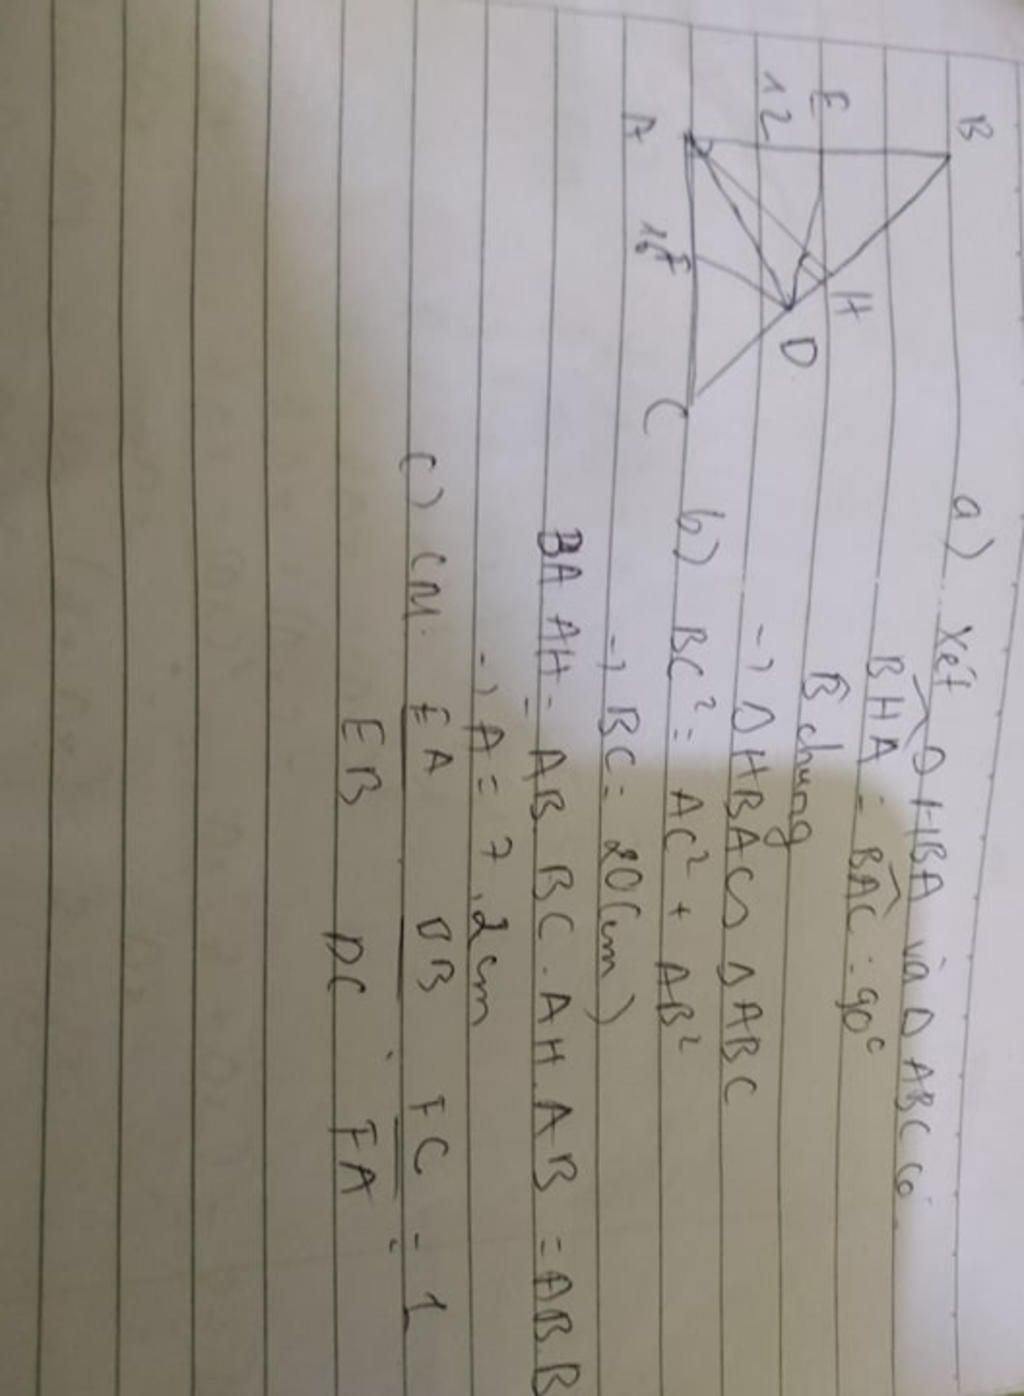 B
E
12
A
16
F
C
D
H
a) Xét Δ HBA và Δ ABC có
BHA = BAC = 90°
B̂ chung
→ Δ HBA ∽ Δ ABC
b) BC² = AC² + AB²
→ BC = 20(cm)
BA AH = AB. BC. AH. AB = AB. B
→ A = 7,2cm
c) CM. EA DB FC = 1
EB DC FA